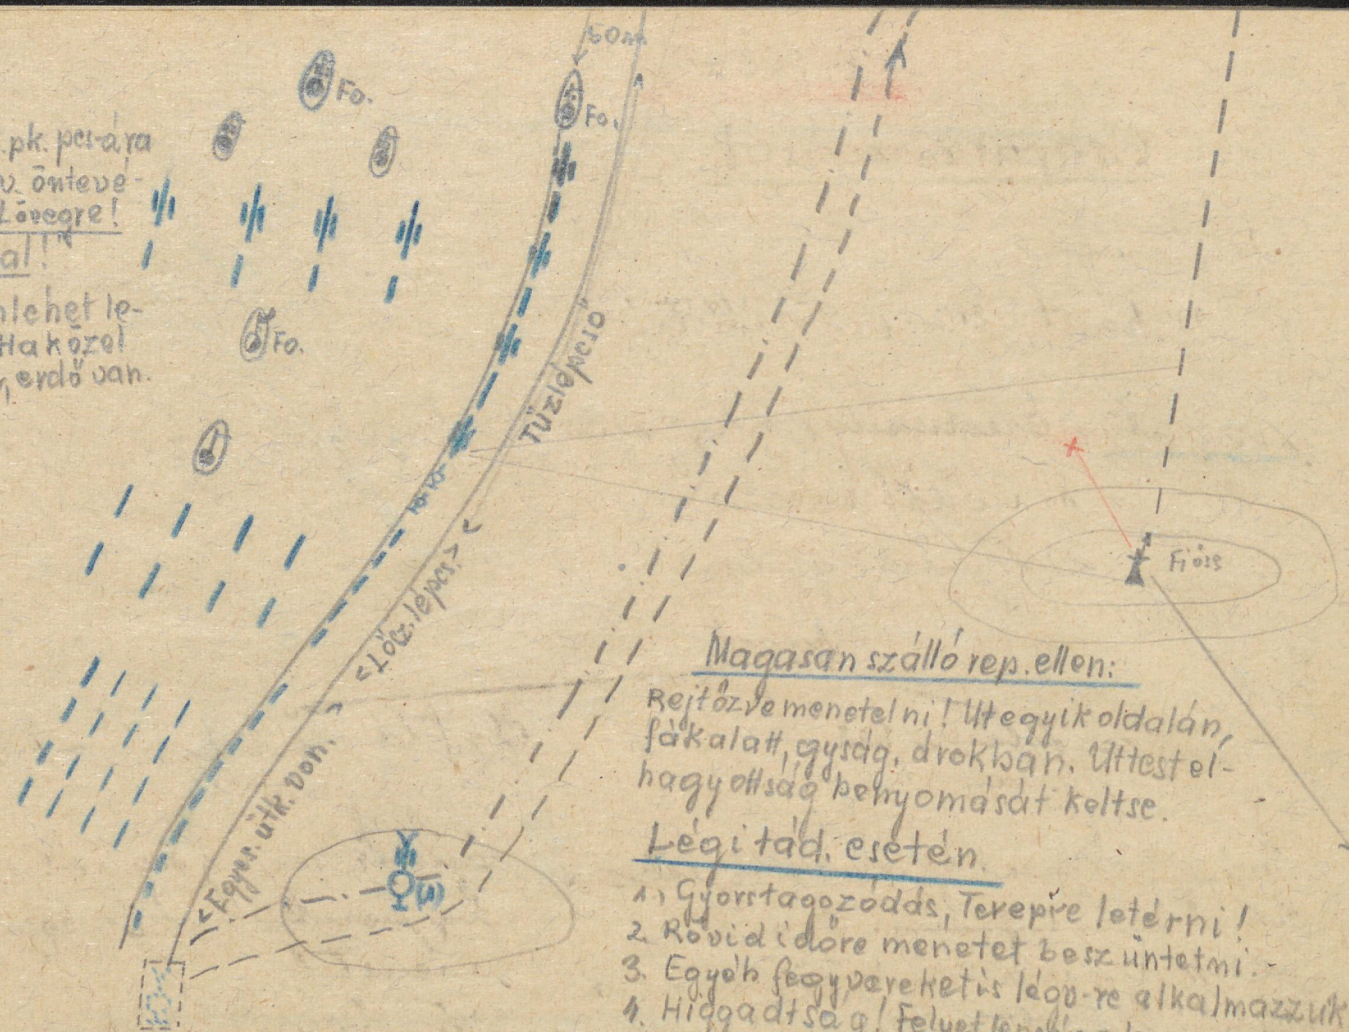 50m
Fo.
Fo.
.pk. pcs-ára
v. öntevé-
Lövegre!
al!"
hlehet le-
Ha közel
, erdő van.
Fo.
Tűzlépcső
Lőcz. lépcs.
Egyes. ütk. von.
Magasan szálló rep. ellen:
Rejtőzve menetelni! Út egyik oldalán,
fák alatt, egység. árokban. Úttest el-
hagyottság benyomását keltse.
Légi tád. esetén.
1., Gyors tagozódás, Terepre letérni!
2. Rövid időre menetet beszüntetni.-
3. Egyéb fegyvereket is légv-re alkalmazzuk
4. Higgadtság!